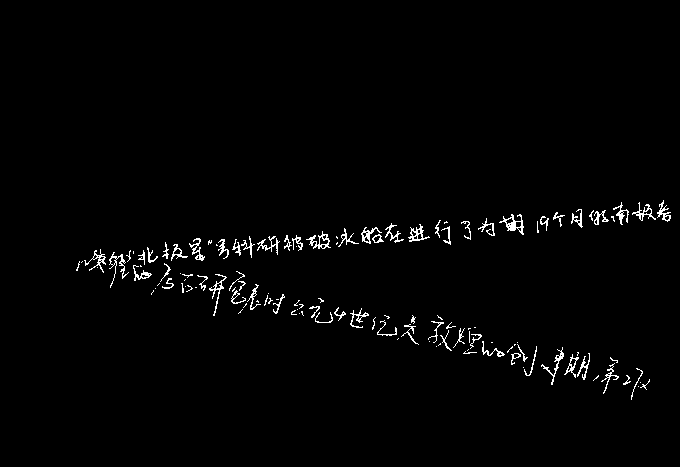 "北极星"号科研被破冰船在进行了为期19个月的南极考
后的研究表时公元4世纪是敦煌的创建期,第27